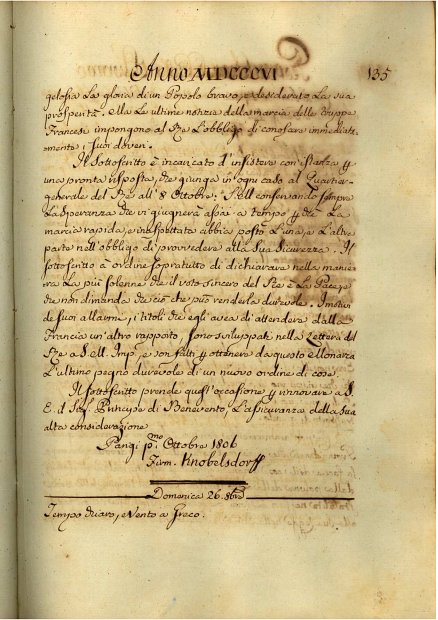 Anno MDCCCVI 135
gelosia La gloria di un Popolo bravo, e desiderato La sua
prosperità. Ma Le ultime notizie della marcia delle Truppe
Francesi impongono al Re L'obbligo di conoscere immediata-
mente i suoi doveri.
Il Sottoscritto è incaricato d'insistere con istanza p
una pronta risposta che giunga in ogni caso al Quartier-
generale del Re all' 8 Ottobre: S. M. conservando sempre
La Speranza che vi giugnerà assai a tempo p che La
marcia rapida, e inaspettata abbia posto L'una, e L'altra
parte nell'obbligo di provvedere alla Sua Sicurezza. Il
sottoscritto à ordine soprattutto di dichiarare nella manie-
ra La più solenne che il voto sincero del Re è La Pace, e
che non dimanda che ciò che può renderla durevole. I motivi
de suoi allarmi, i titoli che egli avea di attendere dalla
Francia un'altro rapporto, sono sviluppati nella Lettera del
Re a S. M. Imp. e son fatti p ottenere da questo Monarca
L'ultimo pegno durevole di un nuovo ordine di cose.
Il sottoscritto prende quest'occasione p rinnovare a S.
E. il Sig. Principe di Benevento, L'assicuranze della sua
alta considerazione
Parigi p.mo Ottobre 1806
Firm. Knobelsdorff
Domenica 26. 8bre
Tempo chiaro, e Vento a Greco.